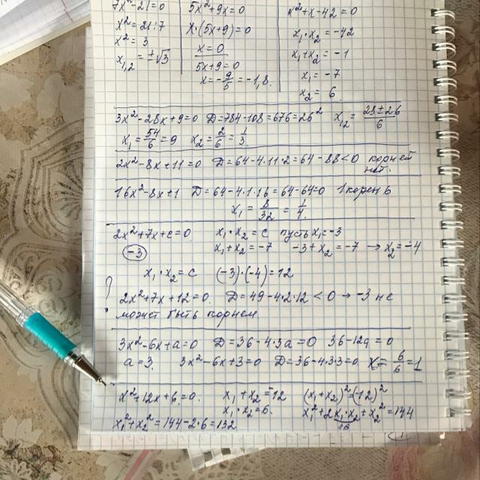 7x²-21=0
x²=21:7
x²=3
x₁,₂=±√3
5x²+9x=0
x·(5x+9)=0
x=0
5x+9=0
x=-9/5=-1,8.
x²+x-42=0
x₁·x₂=-42
x₁+x₂=-1
x₁=-7
x₂=6
3x²-28x+9=0 D=784-108=676=26² x₁,₂=28±26/6
x₁=54/6=9 x₂=2/6=1/3
2x²-8x+11=0 D=64-4·11·2=64-88<0 корней
нет.
16x²-8x+1 D=64-4·1·16=64-64=0 1корень
x₁=8/32=1/4
2x²+7x+c=0 x₁·x₂=c пусть x₁=-3
(-3) x₁+x₂=-7 -3+x₂=-7 → x₂=-4
x₁·x₂=c (-3)·(-4)=12
? 2x²+7x+12=0. D=49-4·2·12<0 → -3 не
может быть корнем
3x²-6x+a=0 D=36-4·3a=0 36-12a=0
a=3. 3x²-6x+3=0 D=36-4·3·3=0. x=6/6=1
x²+12x+6=0. x₁+x₂=-12 (x₁+x₂)²=(12)²
x₁·x₂=6. x₁²+2x₁·x₂+x₂²=144
x₁²+x₂²=144-2·6=132